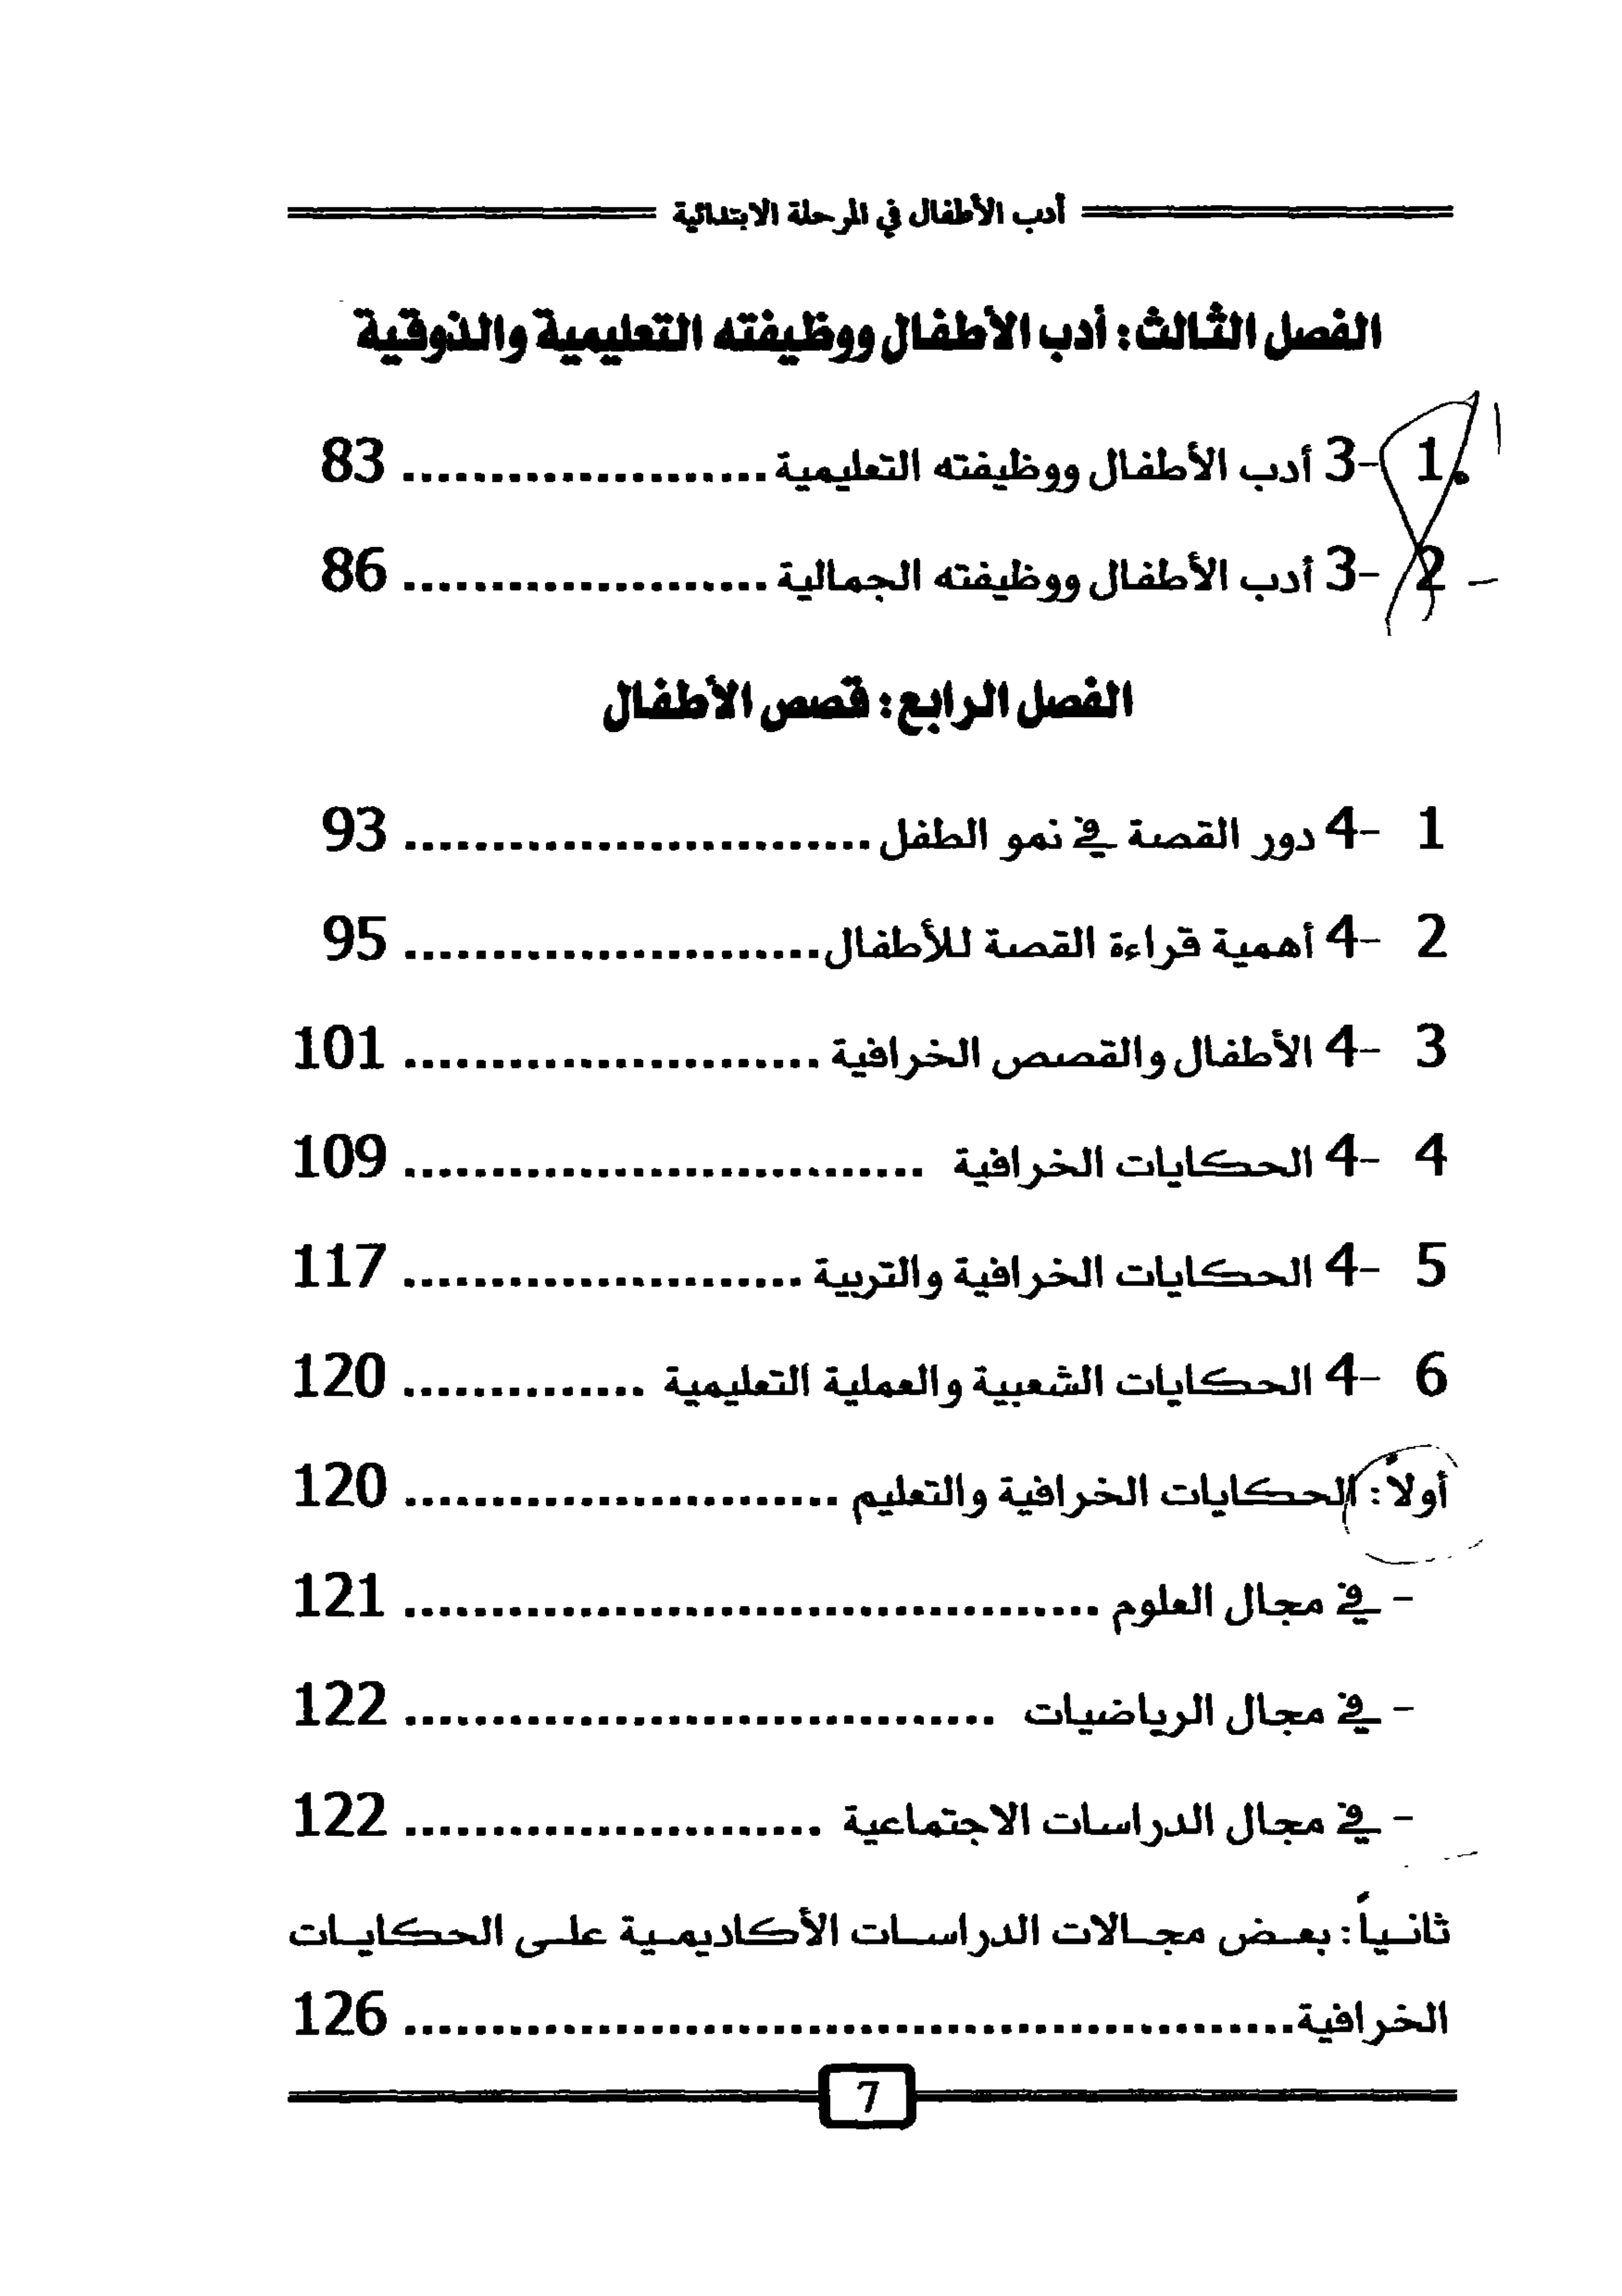 أدب الأطفال في المرحلة الابتدائية
الفصل الثالث: أدب الأطفال ووظيفته التعليمية والذوقية
1 -3 أدب الأطفال ووظيفته التعليمية ..................... 83
2 -3 أدب الأطفال ووظيفته الجمالية ..................... 86
الفصل الرابع: قصص الأطفال
1 -4 دور القصة في نمو الطفل ........................... 93
2 -4 أهمية قراءة القصة للأطفال........................ 95
3 -4 الأطفال والقصص الخرافية ........................ 101
4 -4 الحكايات الخرافية .............................. 109
5 -4 الحكايات الخرافية والتربية ....................... 117
6 -4 الحكايات الشعبية والعملية التعليمية .............. 120
أولاً: الحكايات الخرافية والتعليم ......................... 120
- في مجال العلوم ........................................ 121
- في مجال الرياضيات .................................. 122
- في مجال الدراسات الاجتماعية ........................ 122
ثانياً: بعض مجالات الدراسات الأكاديمية على الحكايات
الخرافية................................................... 126
7